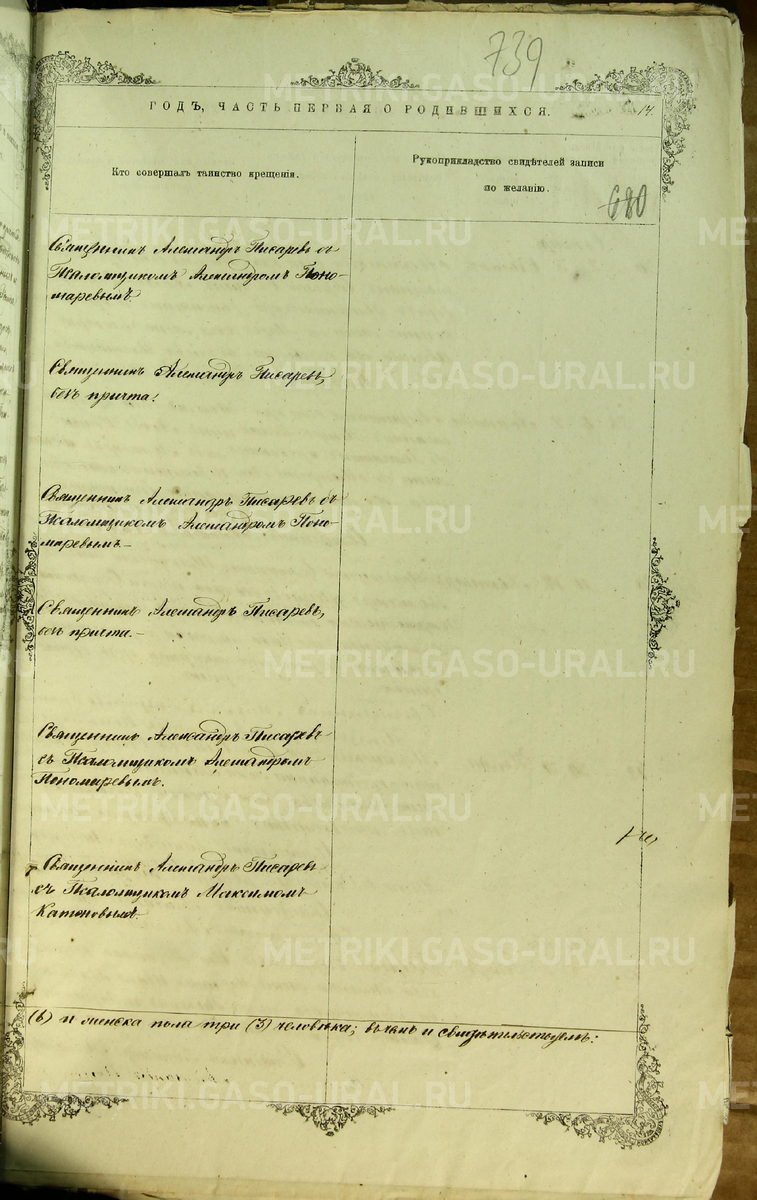 739
ГОДЪ, ЧАСТЬ ПЕРВАЯ О РОДИВШИХСЯ.
14.
Кто совершалъ таинство крещенія.
Рукоприкладство свидѣтелей записи
по желанію.
680
Священникъ Александръ Писаревъ съ
Псаломщикомъ Александромъ Поно-
маревымъ.
Священникъ Александръ Писаревъ,
безъ причта.
Священникъ Александръ Писаревъ съ
Псаломщикомъ Александромъ Поно-
маревымъ.-
Священникъ Александръ Писаревъ,
безъ причта.-
Священникъ Александръ Писаревъ
съ Псаломщикомъ Александромъ
Пономаревымъ.
Священникъ Александръ Писаревъ
съ Псаломщикомъ Максимомъ
(6) и женска пола три (3) человѣка; въ чемъ и свидѣтельствуемъ:
METRIKI.GASO-URAL.RU